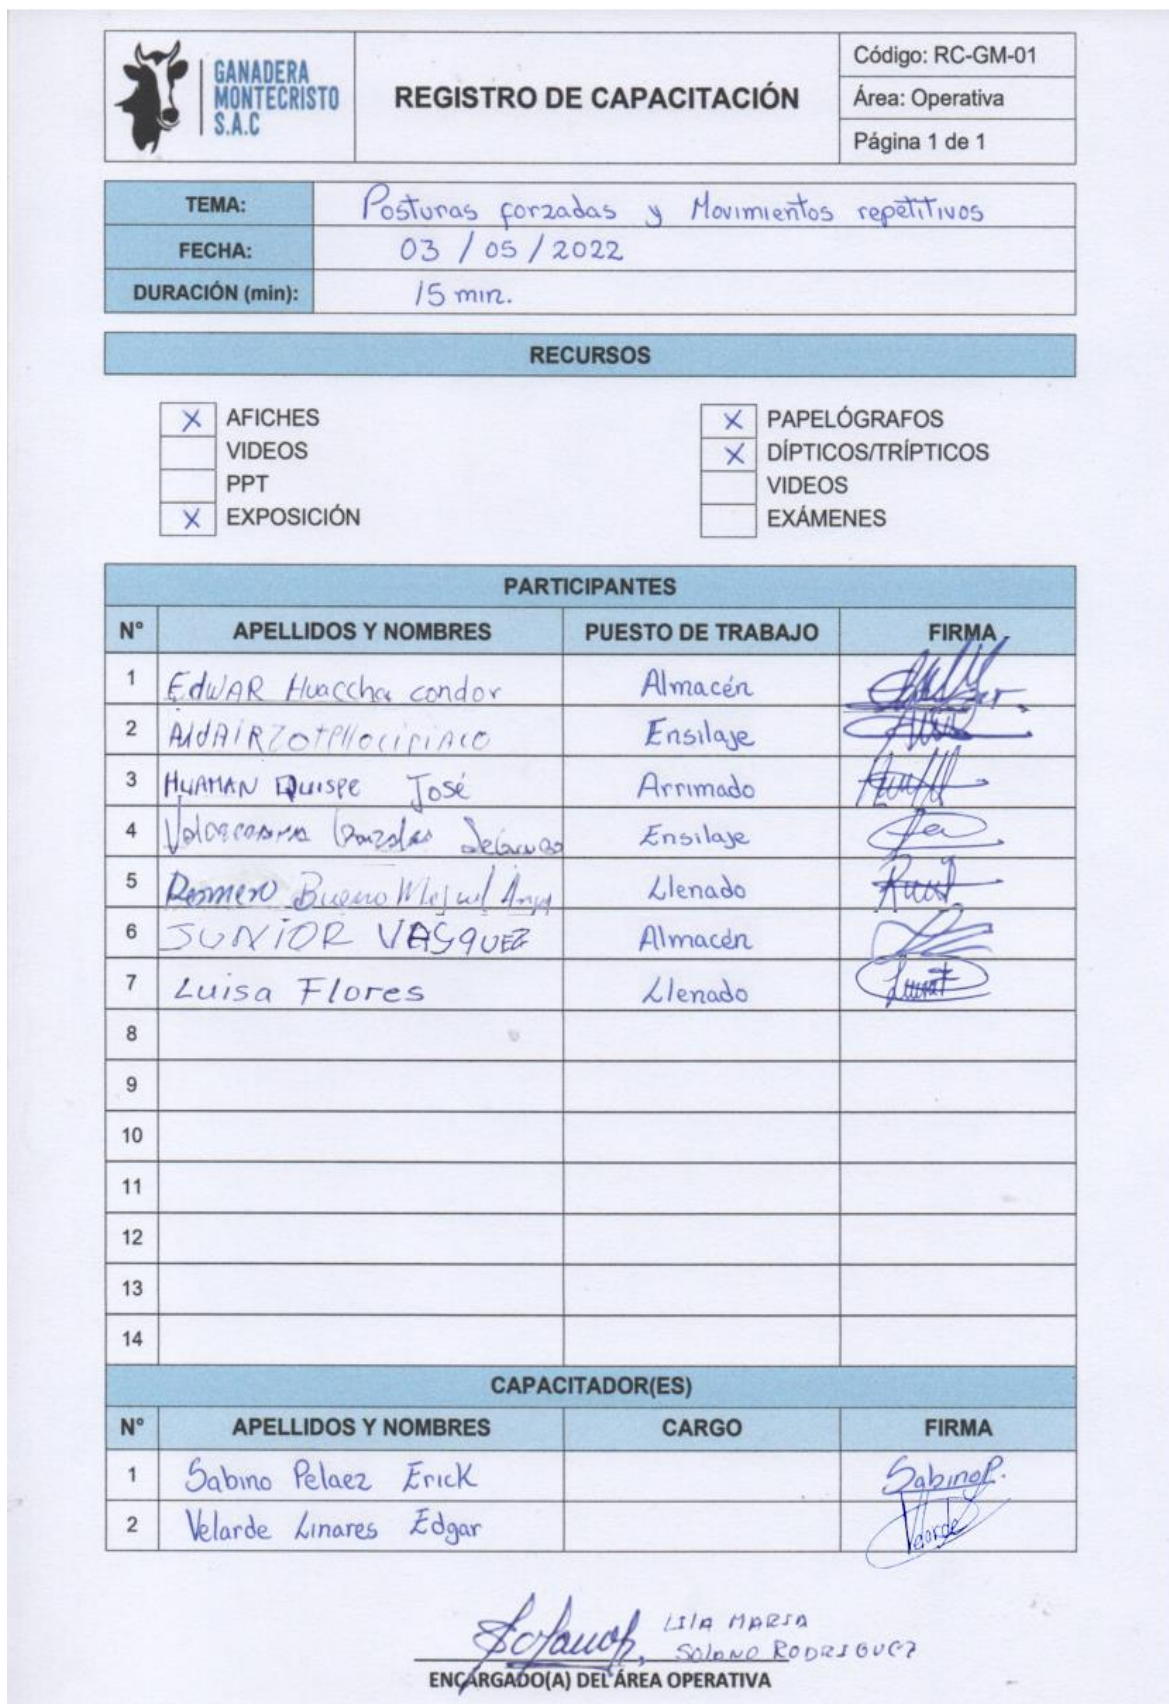 GANADERA
MONTECRISTO
S.A.C
REGISTRO DE CAPACITACIÓN
Código: RC-GM-01
Área: Operativa
Página 1 de 1
TEMA: Posturas forzadas y Movimientos repetitivos
FECHA: 03 / 05 / 2022
DURACIÓN (min): 15 min.
RECURSOS
X AFICHES
VIDEOS
PPT
X EXPOSICIÓN
X PAPELÓGRAFOS
X DÍPTICOS/TRÍPTICOS
VIDEOS
EXÁMENES
PARTICIPANTES
N° APELLIDOS Y NOMBRES PUESTO DE TRABAJO FIRMA
1 EdWAR Huaccha condor Almacén
2 Ensilaje
3 HUAMAN Quispe José Arrimado
4 Ensilaje
5 Romero Bueno Miguel Angel Llenado
6 JUNIOR VASQUEZ Almacén
7 Luisa Flores Llenado
8
9
10
11
12
13
14
CAPACITADOR(ES)
N° APELLIDOS Y NOMBRES CARGO FIRMA
1 Sabino Pelaez Erick SabinoP.
2 Velarde Linares Edgar Velarde
LILA MARIA
SOLANO RODRIGUEZ
ENCARGADO(A) DEL ÁREA OPERATIVA